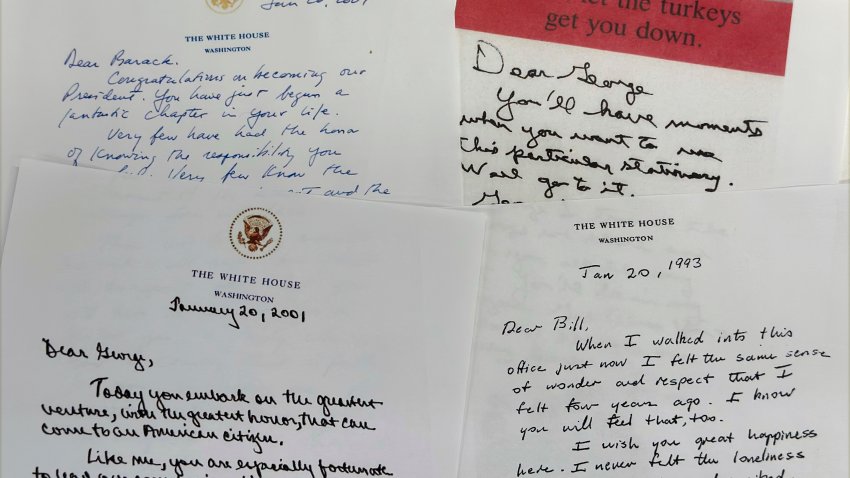 Jan 20,
THE WHITE HOUSE
WASHINGTON
Dear Barack.
Congratulations on becoming our
President. You have just begun a
fantastic chapter in your life.
Very few have had the honor
of knowing the responsibility you
Very few know the
and the
let the turkeys
get you down.
Dear George
You'll have moments
when you want to use
this particular stationary.
Well go to it.
THE WHITE HOUSE
WASHINGTON
January 20, 2001
Dear George,
Today you embark on the greatest
venture, with the greatest honor, that can
come to an American citizen.
Like me, you are especially fortunate
to lead our
THE WHITE HOUSE
WASHINGTON
Jan 20, 1993
Dear Bill,
When I walked into this
office just now I felt the same sense
of wonder and respect that I
felt four years ago. I know
you will feel that, too.
I wish you great happiness
here. I never felt the loneliness